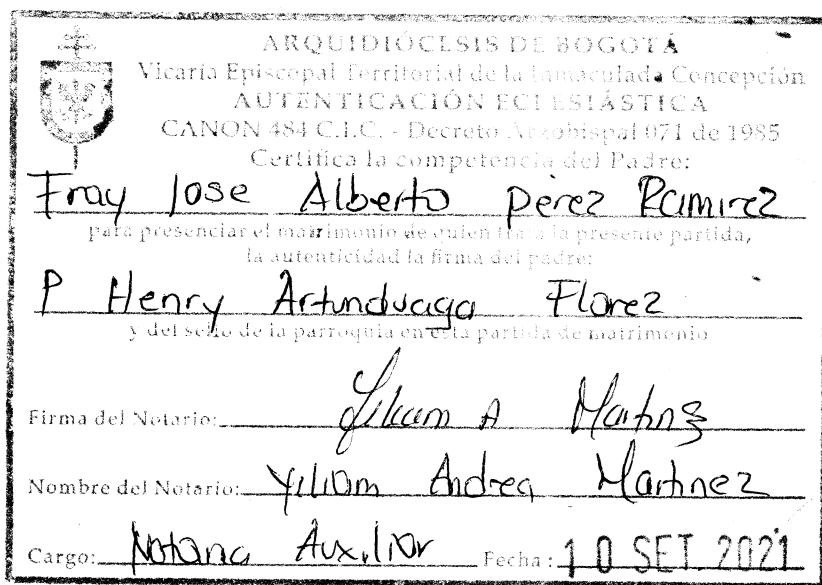 ARQUIDIÓCESIS DE BOGOTÁ
Vicaría Episcopal Territorial de la Inmaculada Concepción
AUTENTICACIÓN ECLESIÁSTICA
CANON 484 C.I.C. - Decreto Arzobispal 071 de 1985
Certifica la competencia del Padre:
Fray Jose Alberto Perez Ramirez
para presenciar el matrimonio de quien trata la presente partida,
la autenticidad la firma del padre:
P Henry Artunduaga Florez
y del sello de la parroquia en esta partida de matrimonio
Firma del Notario: Yiliam A Martinez
Nombre del Notario: Yiliam Andrea Martinez
Cargo: Notaria Auxiliar Fecha: 10 SET. 2021